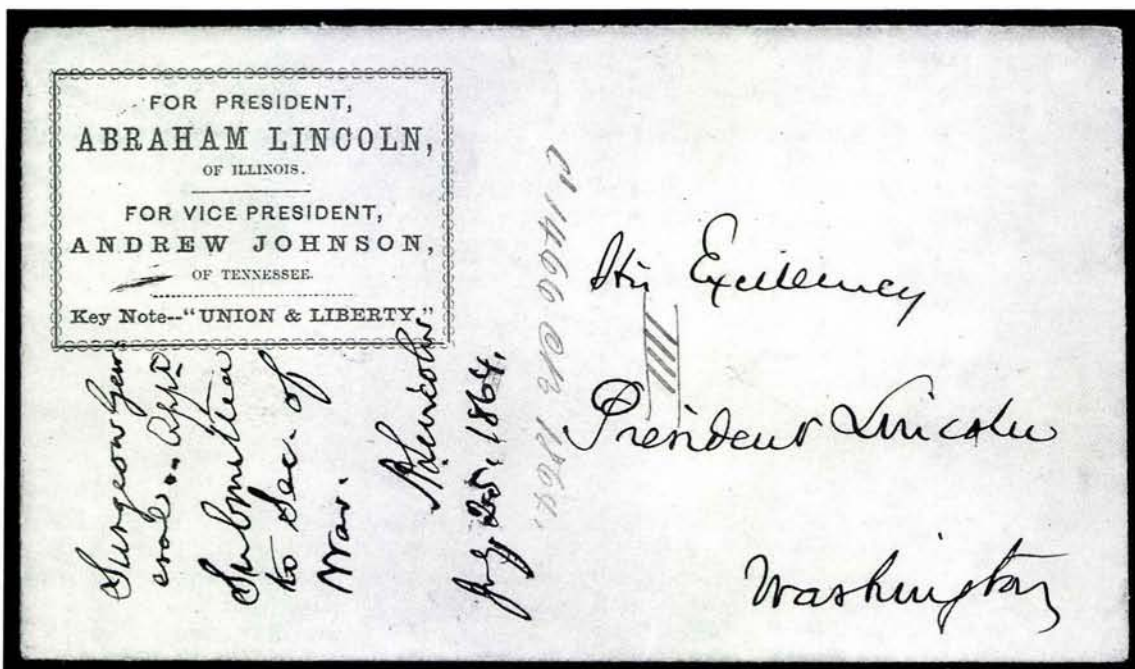 FOR PRESIDENT,
ABRAHAM LINCOLN,
OF ILLINOIS.
FOR VICE PRESIDENT,
ANDREW JOHNSON,
OF TENNESSEE.
Key Note--"UNION & LIBERTY."
Surgeon Gen-
eral.. App.t
Submitted
to Sec. of
War.
A. Lincoln
July 25, 1864.
1864.
His Excellency
President Lincoln
Washington